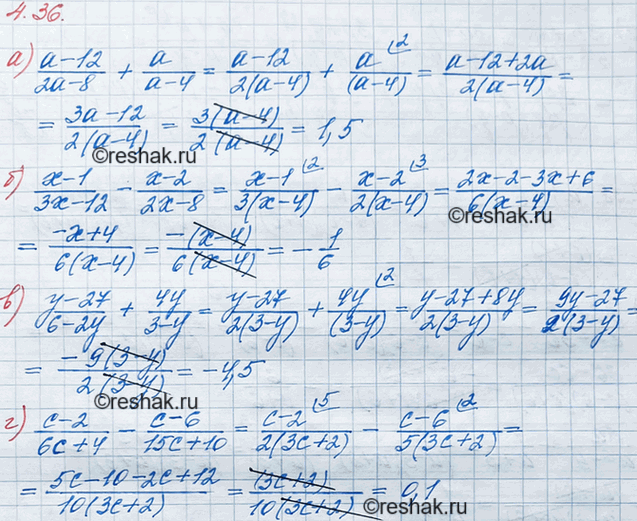 4.36.
а) (a-12)/(2a-8) + a/(a-4) = (a-12)/(2(a-4)) + a^{⌊2}/(a-4) = (a-12+2a)/(2(a-4)) =
= (3a-12)/(2(a-4)) = 3(a-4)/(2(a-4)) = 1,5
©reshak.ru
б) (x-1)/(3x-12) - (x-2)/(2x-8) = (x-1)^{⌊2}/(3(x-4)) - (x-2)^{⌊3}/(2(x-4)) = (2x-2-3x+6)/(6(x-4)) =
©reshak.ru
= (-x+4)/(6(x-4)) = -(x-4)/(6(x-4)) = -1/6
в) (y-27)/(6-2y) + 4y/(3-y) = (y-27)/(2(3-y)) + 4y^{⌊2}/(3-y) = (y-27+8y)/(2(3-y)) = (9y-27)/(2(3-y)) =
= -9(3-y)/(2(3-y)) = -4,5
©reshak.ru
г) (c-2)/(6c+4) - (c-6)/(15c+10) = (c-2)^{⌊5}/(2(3c+2)) - (c-6)^{⌊2}/(5(3c+2)) =
= (5c-10-2c+12)/(10(3c+2)) = (3c+2)/(10(3c+2)) = 0,1
©reshak.ru